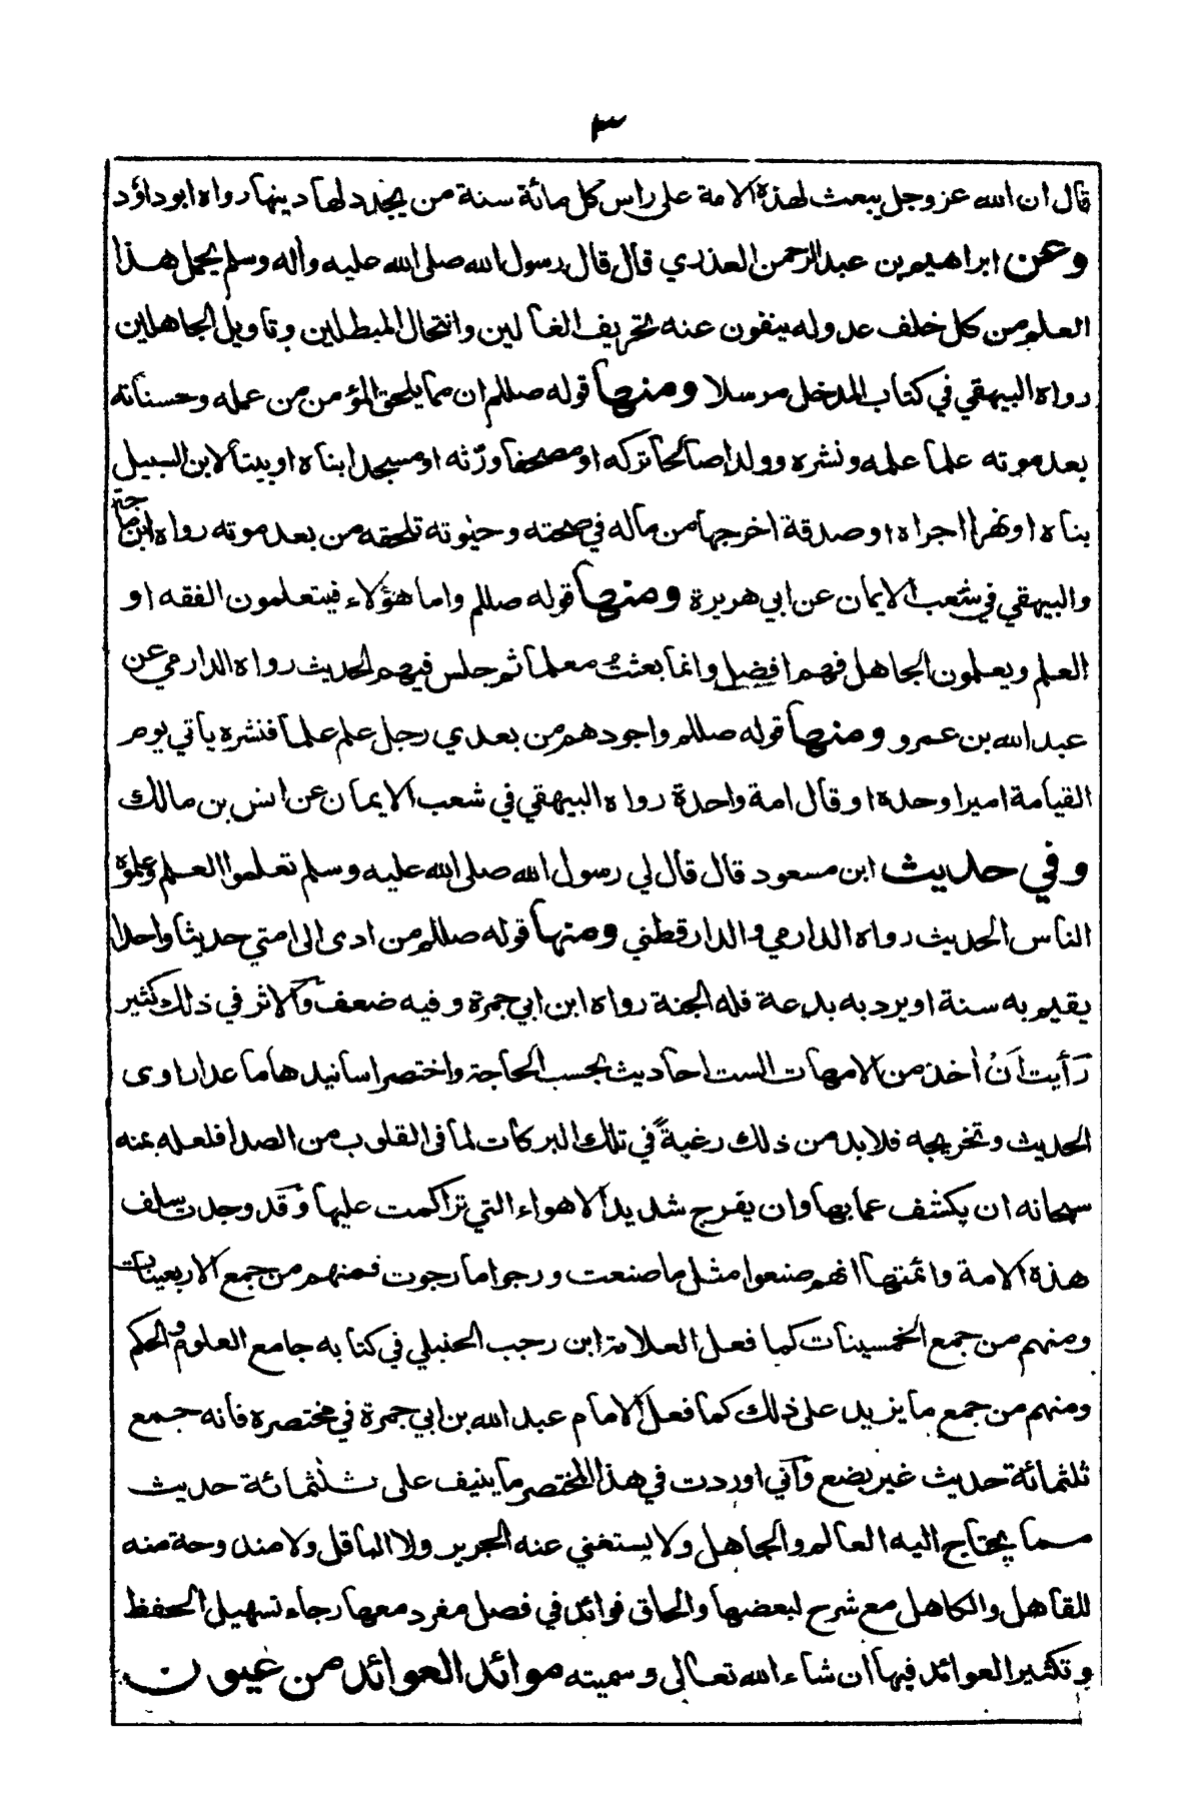 ٣
قال ان الله عز وجل يبعث لهذه الامة على راس كل مائة سنة من يجدد لها دينها رواه ابو داؤد
وعن ابراهيم بن عبد الرحمن العذري قال قال رسول الله صلى الله عليه وأله وسلم يحمل هذا
العلم من كل خلف عدوله ينفون عنه تحريف الغالين وانتحال المبطلين وتاويل الجاهلين
رواه البيهقي في كتاب المدخل مرسلا ومنها قوله صللم ان مما يلحق المؤمن من عمله وحسناته
بعد موته علما علمه ونشره وولدا صالحا تركه او مصحفا ورّثه او مسجدا بناه او بيتا لابن السبيل
بناه او نهرا اجراه او صدقة اخرجها من ماله في صحته وحيوته تلحقه من بعد موته رواه ابن ماجة
والبيهقي في شعب الايمان عن ابي هريرة ومنها قوله صللم واما هؤلاء فيتعلمون الفقه او
العلم ويعلمون الجاهل فهم افضل وانما بعثتُ معلما ثم جلس فيهم الحديث رواه الدارمي عن
عبد الله بن عمرو ومنها قوله صللم واجودهم من بعدي رجل علم علما فنشره يأتي يوم
القيامة اميرا وحده او قال امة واحدة رواه البيهقي في شعب الايمان عن انس بن مالك
وفي حديث ابن مسعود قال قال لي رسول الله صلى الله عليه وسلم تعلموا العلم وعلموه
الناس الحديث رواه الدارمي والدارقطني ومنها قوله صللم من ادى الى امتي حديثا واحدا
يقيم به سنة او يرد به بدعة فله الجنة رواه ابن ابي جمرة وفيه ضعف والاثر في ذلك كثير
رَأيت اَنْ أخذ من الامهات الست احاديث بحسب الحاجة واختصر اسانيدها ما عدا راوى
الحديث وتخريجه فلا بد من ذلك رغبةً في تلك البركات لما فى القلوب من الصدا فلعله بمنه
سبحانه ان يكشف عما بها وان يفرج شديد الاهواء التي تراكمت عليها وقد وجدت سلف
هذه الامة وائمتها انهم صنعوا مثل ما صنعت ورجوا ما رجوت فمنهم من جمع الاربعينات
ومنهم من جمع الخمسينات كما فعل العلامة ابن رجب الحنبلي في كتابه جامع العلوم والحكم
ومنهم من جمع ما يزيد على ذلك كما فعل الامام عبد الله بن ابي جمرة في مختصره فانه جمع
ثلثمائة حديث غير بضع وآني اوردت في هذا المختصر ما ينيف على ثلثمائة حديث
مما يحتاج اليه العالم والجاهل ولا يستغني عنه الحرير ولا الباقل ولا مندوحة منه
للقاهل والكاهل مع شرح لبعضها والحاق فوائد في فصل مفرد معها رجاء تسهيل الحفظ
وتكثير العوائد فيها ان شاء الله تعالى وسميته موائد العوائد من عيون